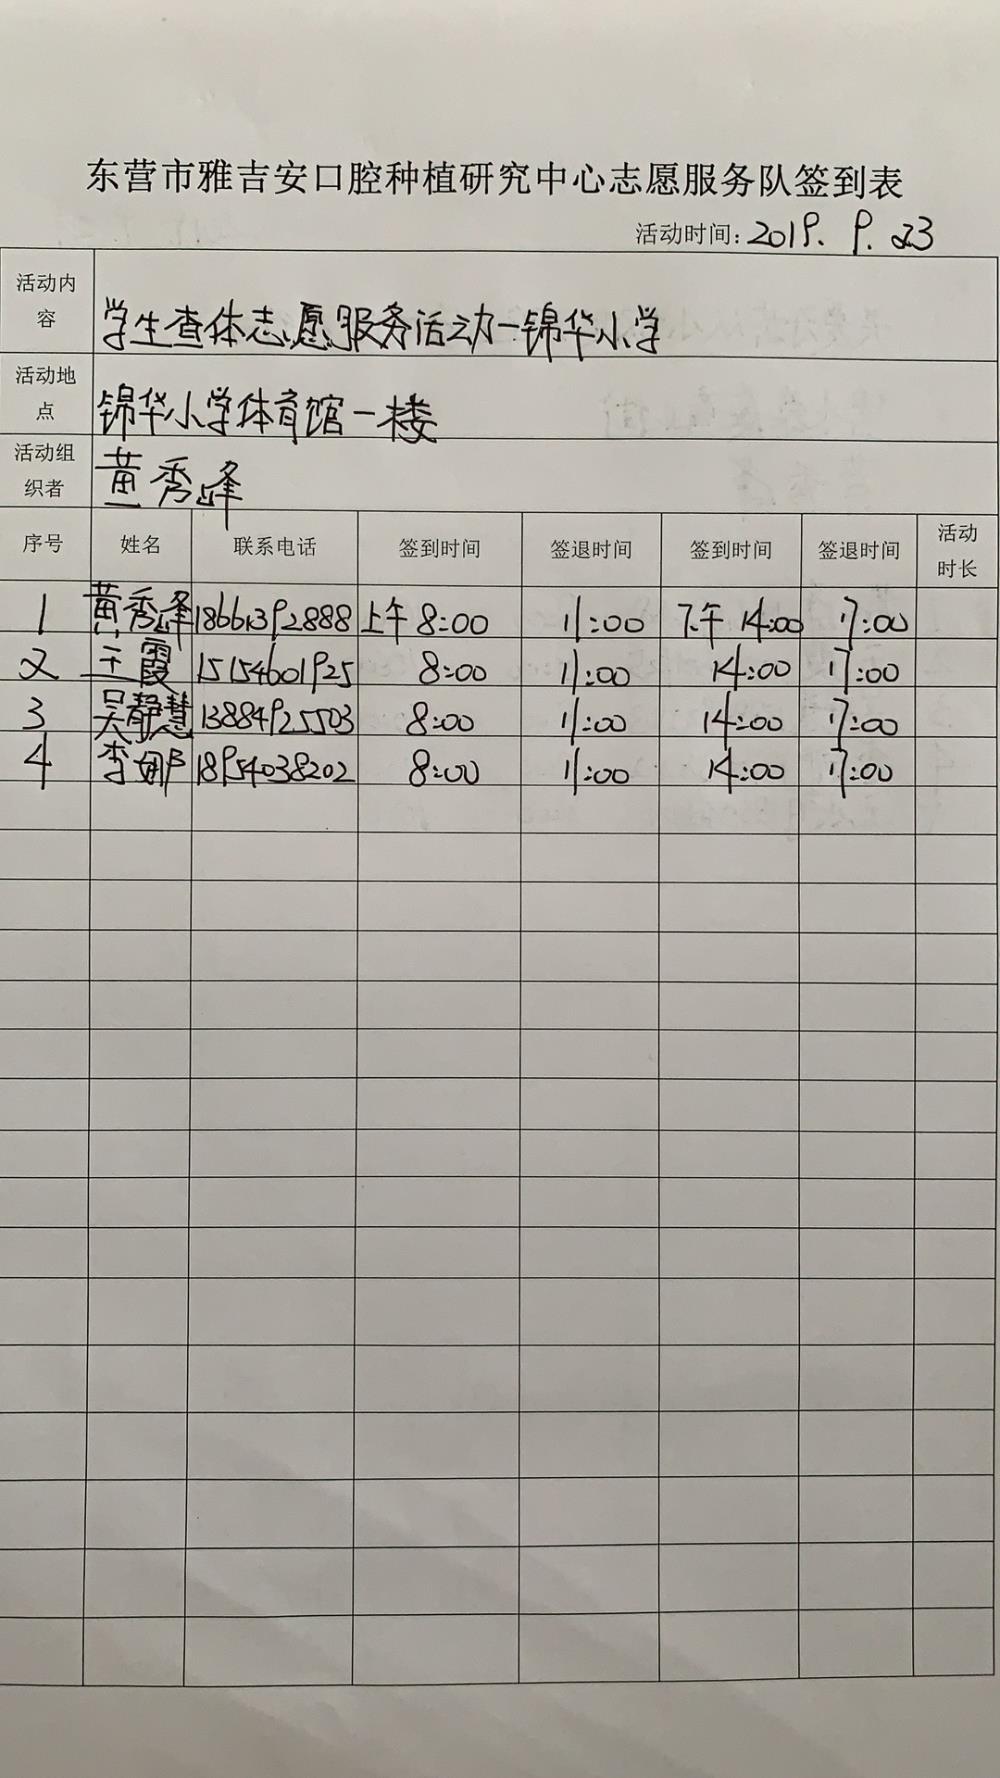 东营市雅吉安口腔种植研究中心志愿服务队签到表
活动时间：2019.9.23
活动内容 学生查体志愿服务活动-锦华小学
活动地点 锦华小学体育馆一楼
活动组织者 黄秀峰
序号 姓名 联系电话 签到时间 签退时间 签到时间 签退时间 活动时长
1 黄秀峰 18661392888 上午 8:00 11:00 下午 14:00 17:00
2 王霞 15154601925 8:00 11:00 14:00 17:00
3 吴静慧 13884925503 8:00 11:00 14:00 17:00
4 李娜 18954038202 8:00 11:00 14:00 17:00